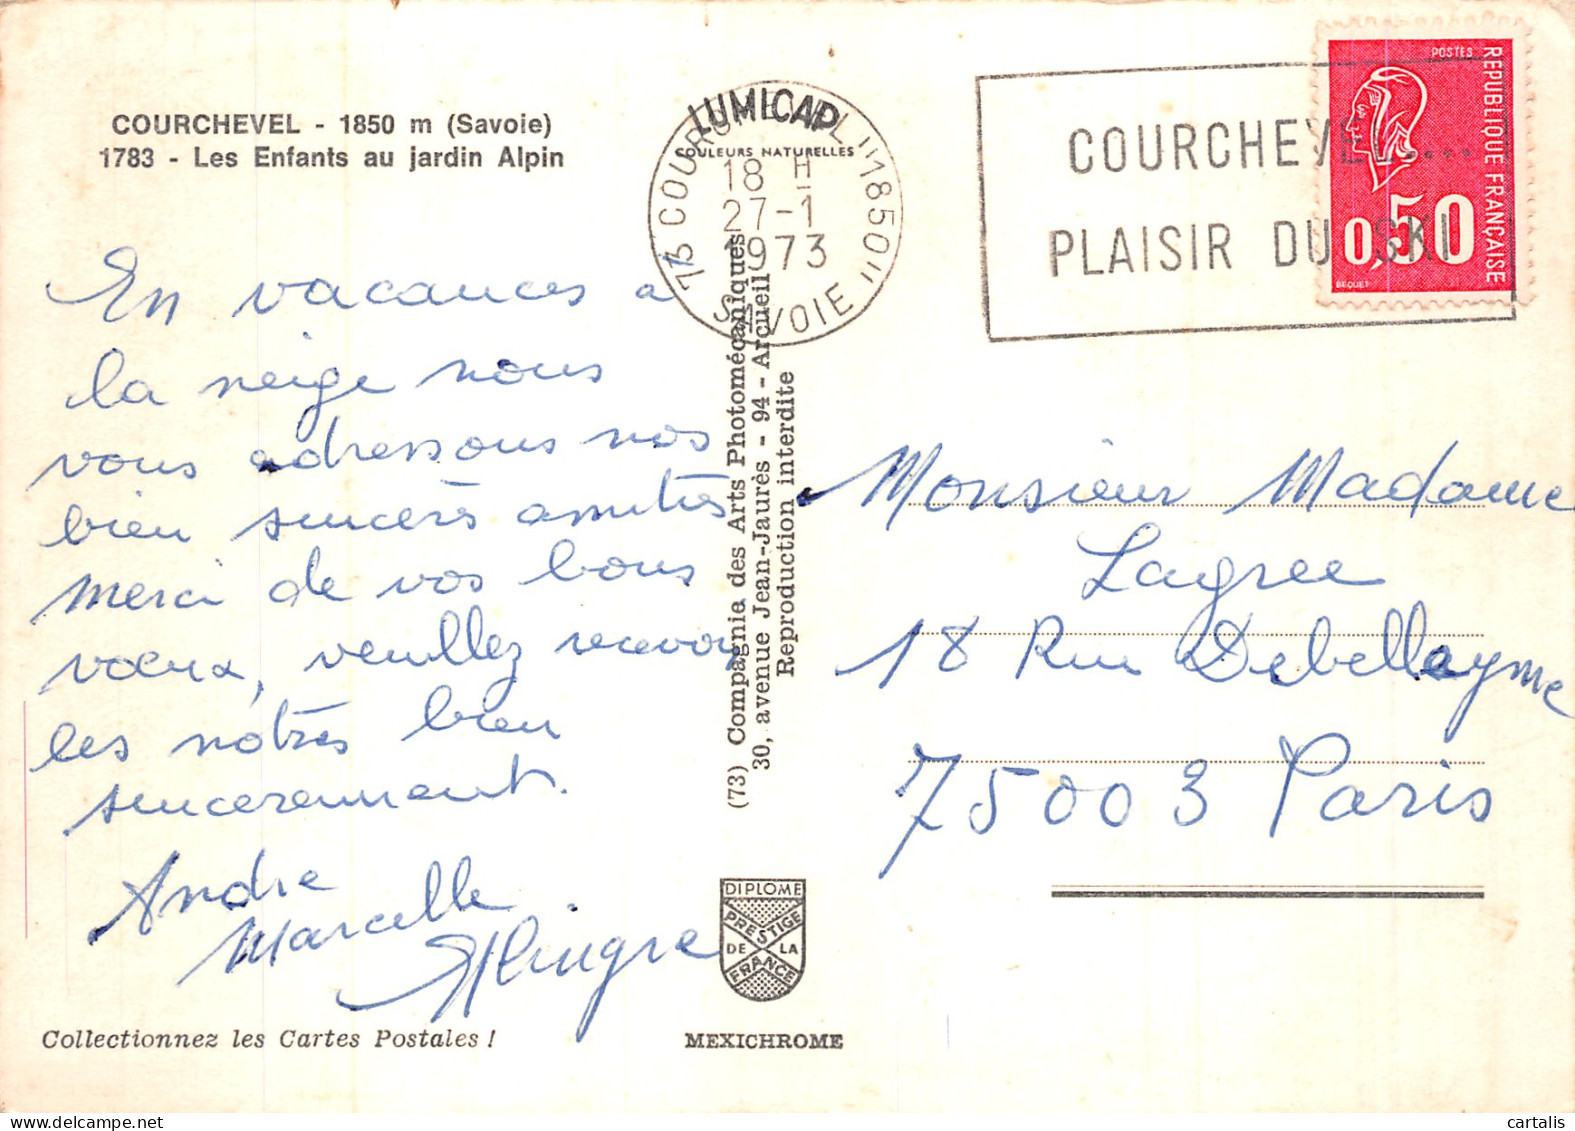 COURCHEVEL - 1850 m (Savoie)
1783 - Les Enfants au jardin Alpin
En vacances a
la neige nous
vous adressons nos
bien sincères amitiés
merci de vos bons
voeux, veuillez recevoir
les nôtres bien
sincerement.
Andre
Marcelle
Collectionnez les Cartes Postales !
LUMICAP
COULEURS NATURELLES
73 COURCHEVEL "1850"
18 H
27-1
1973
SAVOIE
(73) Compagnia des Arts Photomécaniques
30, avenue Jean-Jaurès - 94 - Arcueil
Reproduction interdite
DIPLOME
PRESTIGE
DE LA
FRANCE
MEXICHROME
COURCHEVEL....
PLAISIR DU SKI
POSTES
REPUBLIQUE FRANÇAISE
0,50
BEQUET
Monsieur Madame
Lagree
18 Rue Debelleyme
75003 Paris
cartalis